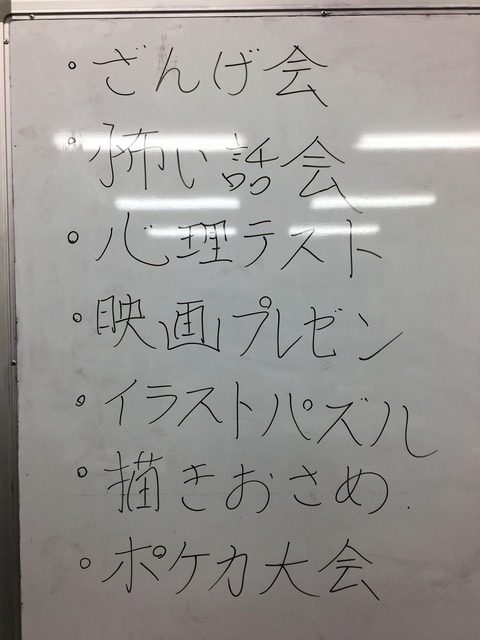 。ざんげ会
。怖い話会
。心理テスト
。映画プレゼン
。イラストパズル
。描きおさめ.
。ポケカ大会